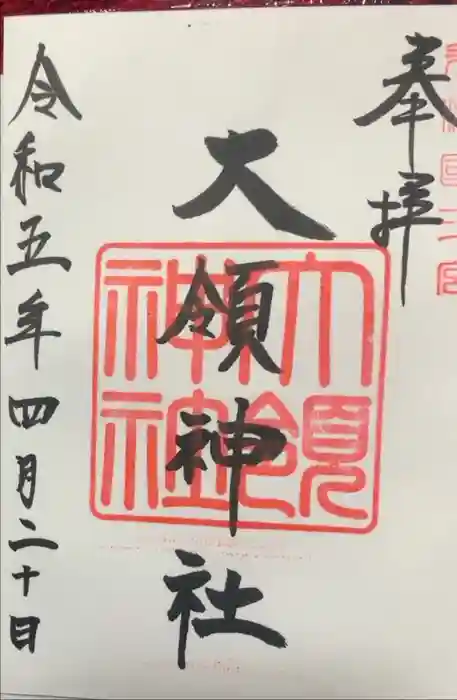 奉拝
大領神社
大領
神社
令和五年四月二十日